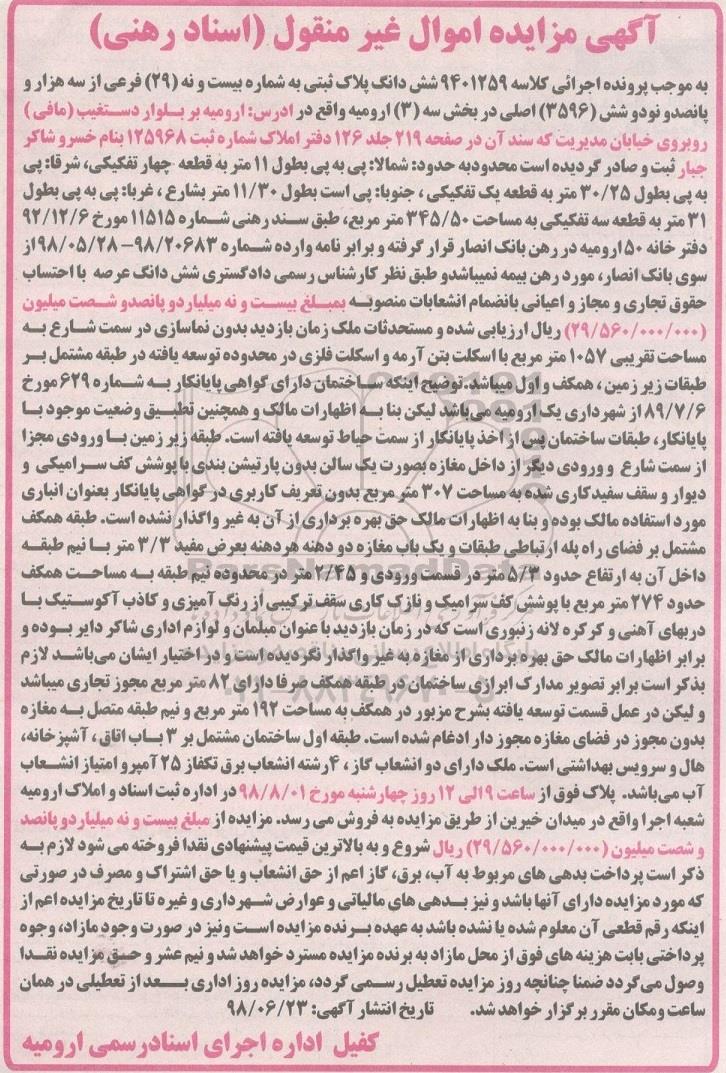 آگهی مزایده اموال غیر منقول (اسناد رهنی)
به موجب پرونده اجرائی کلاسه ۹۴۰۱۲۵۹ شش دانگ پلاک ثبتی به شماره بیست و نه (۲۹) فرعی از سه هزار و
پانصدو نودو شش (۳۵۹۶) اصلی در بخش سه (۳) ارومیه واقع در ادرس: ارومیه بر بلوار دستغیب (مافی)
روبروی خیابان مدیریت که سند آن در صفحه ۲۱۹ جلد ۱۲۶ دفتر املاک شماره ثبت ۱۲۵۹۶۸ بنام خسرو شاکر
جبار ثبت و صادر گردیده است محدودبه حدود: شمالا: پی به پی بطول ۱۱ متر به قطعه چهار تفکیکی، شرقا: پی
به پی بطول ۳۰/۲۵ متر به قطعه یک تفکیکی، جنوبا: پی است بطول ۱۱/۳۰ متر بشارع، غربا: پی به پی بطول
۳۱ متر به قطعه سه تفکیکی به مساحت ۳۴۵/۵۰ متر مربع، طبق سند رهنی شماره ۱۱۵۱۵ مورخ ۹۲/۱۲/۶
دفتر خانه ۵۰ ارومیه در رهن بانک انصار قرار گرفته و برابر نامه وارده شماره ۹۸/۲۰۶۸۳-۹۸/۰۵/۲۸ از
سوی بانک انصار، مورد رهن بیمه نمیباشدو طبق نظر کارشناس رسمی دادگستری شش دانگ عرصه با احتساب
حقوق تجاری و مجاز و اعیانی بانضمام انشعابات منصوبه بمبلغ بیست و نه میلیاردو پانصدو شصت میلیون
(۲۹/۵۶۰/۰۰۰/۰۰۰) ریال ارزیابی شده و مستحدثات ملک زمان بازدید بدون نماسازی در سمت شارع به
مساحت تقریبی ۱۰۵۷ متر مربع با اسکلت بتن آرمه و اسکلت فلزی در محدوده توسعه یافته در طبقه مشتمل بر
طبقات زیر زمین، همکف و اول میباشد. توضیح اینکه ساختمان دارای گواهی پایانکار به شماره ۶۲۹ مورخ
۸۹/۷/۶ از شهرداری یک ارومیه می‌باشد لیکن بنا به اظهارات مالک و همچنین تطبیق وضعیت موجود با
پایانکار، طبقات ساختمان پس از اخذ پایانکار از سمت حیاط توسعه یافته است. طبقه زیر زمین با ورودی مجزا
از سمت شارع و ورودی دیگر از داخل مغازه بصورت یک سالن بدون پارتیشن بندی با پوشش کف سرامیکی و
دیوار و سقف سفیدکاری شده به مساحت ۳۰۷ متر مربع بدون تعریف کاربری در گواهی پایانکار بعنوان انباری
مورد استفاده مالک بوده و بنا به اظهارات مالک حق بهره برداری از آن به غیر واگذار نشده است. طبقه همکف
مشتمل بر فضای راه پله ارتباطی طبقات و یک باب مغازه دو دهنه هردهنه بعرض مفید ۳/۳ متر با نیم طبقه
داخل آن به ارتفاع حدود ۵/۳ متر در قسمت ورودی و ۲/۴۵ متر در محدوده نیم طبقه به مساحت همکف
حدود ۲۷۴ متر مربع با پوشش کف سرامیک و نازک کاری سقف ترکیبی از رنگ آمیزی و کاذب آکوستیک با
دربهای آهنی و کرکره لانه زنبوری است که در زمان بازدید با عنوان مبلمان و لوازم اداری شاکر دایر بوده و
برابر اظهارات مالک حق بهره برداری از مغازه به غیر واگذار نگردیده است و در اختیار ایشان می‌باشد لازم
بذکر است برابر تصویر مدارک ابرازی ساختمان در طبقه همکف صرفا دارای ۸۲ متر مربع مجوز تجاری میباشد
و لیکن در عمل قسمت توسعه یافته بشرح مزبور در همکف به مساحت ۱۹۲ متر مربع و نیم طبقه متصل به مغازه
بدون مجوز در فضای مغازه مجوز دار ادغام شده است. طبقه اول ساختمان مشتمل بر ۳ باب اتاق، آشپزخانه،
هال و سرویس بهداشتی است. ملک دارای دو انشعاب گاز، ۴ رشته انشعاب برق تکفاز ۲۵ آمپرو امتیاز انشعاب
آب می‌باشد. پلاک فوق از ساعت ۹ الی ۱۲ روز چهارشنبه مورخ ۹۸/۸/۰۱ در اداره ثبت اسناد و املاک ارومیه
شعبه اجرا واقع در میدان خیرین از طریق مزایده به فروش می رسد. مزایده از مبلغ بیست و نه میلیاردو پانصد
و شصت میلیون (۲۹/۵۶۰/۰۰۰/۰۰۰) ریال شروع و به بالاترین قیمت پیشنهادی نقدا فروخته می شود لازم به
ذکر است پرداخت بدهی های مربوط به آب، برق، گاز اعم از حق انشعاب و یا حق اشتراک و مصرف در صورتی
که مورد مزایده دارای آنها باشد و نیز بدهی های مالیاتی و عوارض شهرداری و غیره تا تاریخ مزایده اعم از
اینکه رقم قطعی آن معلوم شده یا نشده باشد به عهده برنده مزایده است ونیز در صورت وجود مازاد، وجوه
پرداختی بابت هزینه های فوق از محل مازاد به برنده مزایده مسترد خواهد شد و نیم عشر و حق مزایده نقدا
وصول می‌گردد ضمنا چنانچه روز مزایده تعطیل رسمی گردد، مزایده روز اداری بعد از تعطیلی در همان
ساعت ومکان مقرر برگزار خواهد شد. تاریخ انتشار آگهی: ۹۸/۰۶/۲۳
کفیل اداره اجرای اسنادرسمی ارومیه